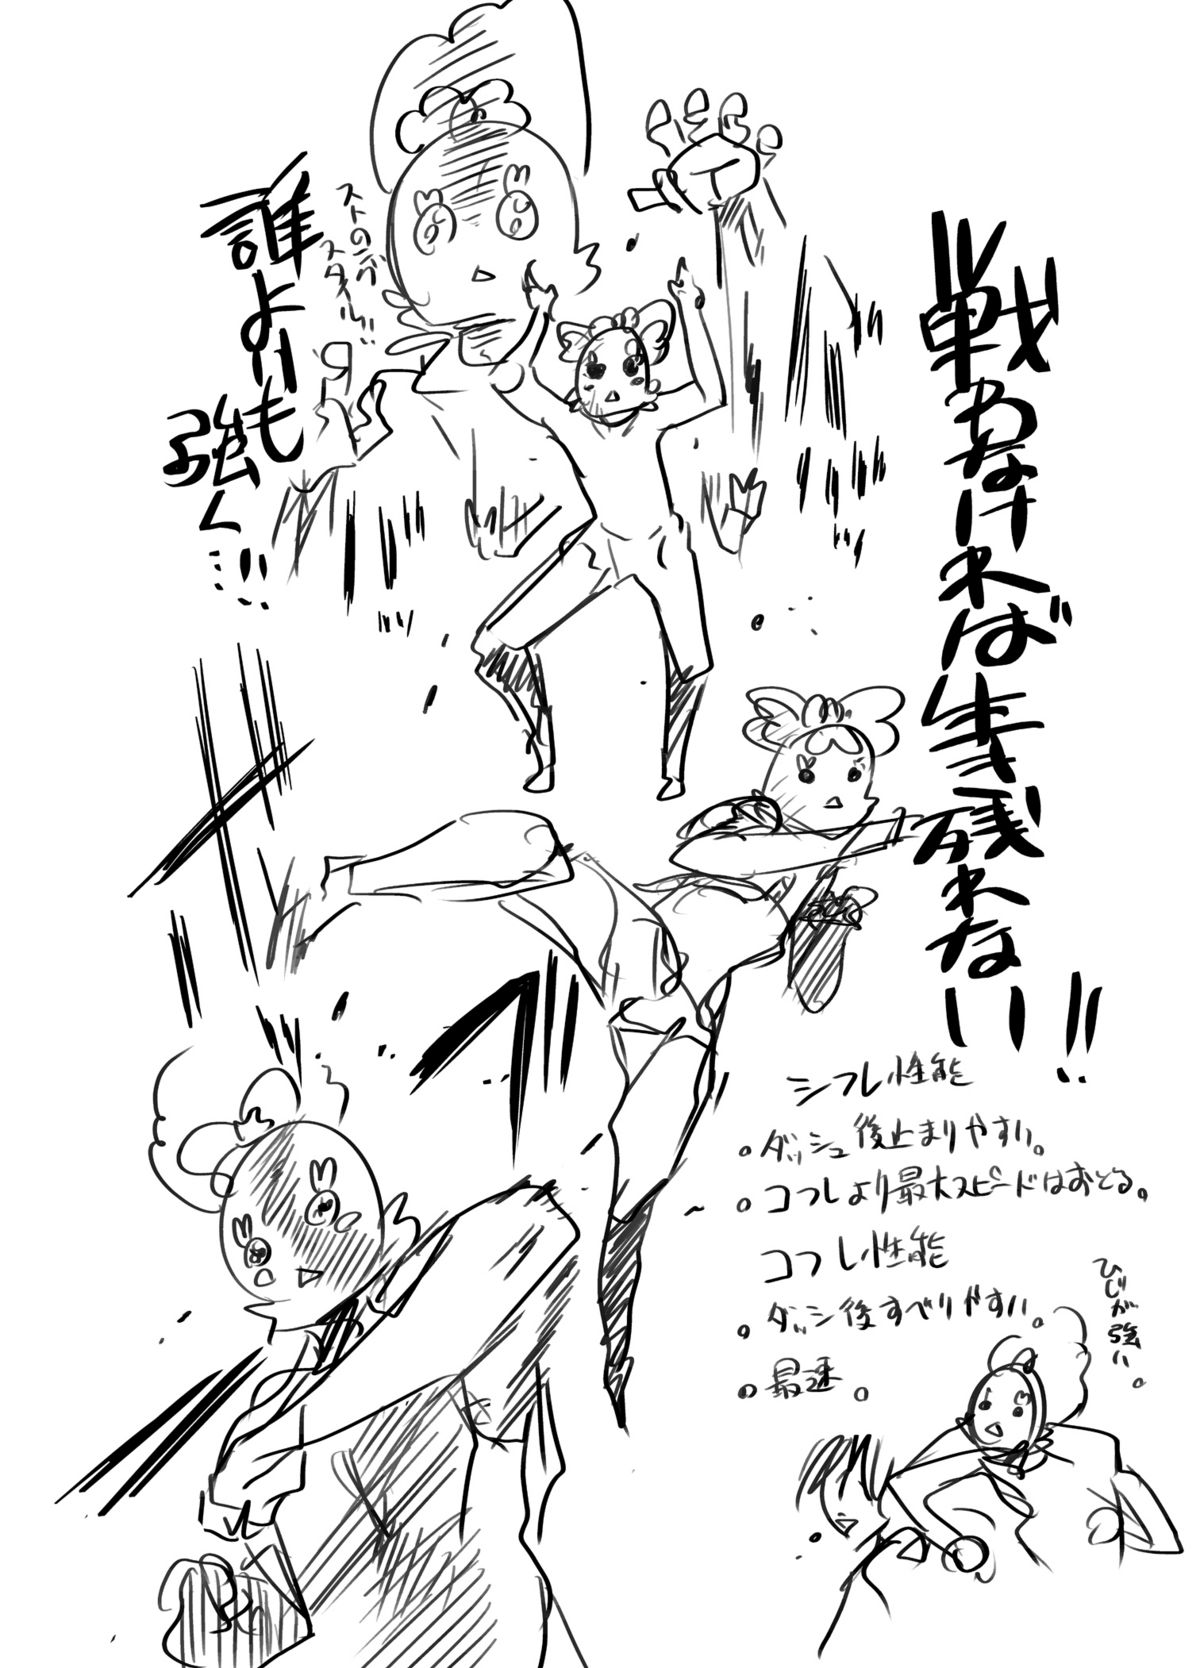 戦わなければ生き残れない!!
誰よりも
強く…!!
ストロング
スタイル!!
シフレ性能
。ダッシュ後止まりやすい。
。コフレより最大スピードはおとる。
コフレ性能
。ダッシ後すべりやすい。
。最速。
ひじが強い。